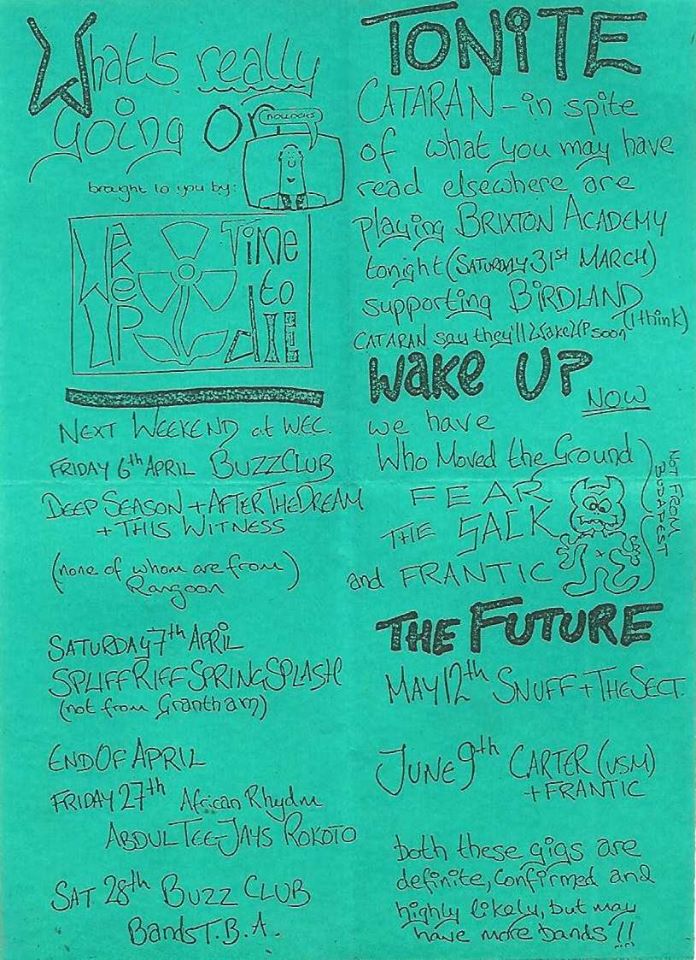 What's really
going On
brought to you by:
WAKE UP
TiMe
to
diE
NEXT WEEKEND at WEC.
FRIDAY 6th APRIL BUZZCLUB
DEEP SEASON + AFTERTHEDREAM
+ THIS WITNESS
(none of whom are from
Rangoon)
SATURDAY 7th APRIL
SPLIFFRIFFSPRINGSPLASH
(not from Grantham)
ENDOF APRIL
FRIDAY 27th African Rhydm
ABDULTEE-JAYS ROKOTO
SAT 28th BUZZ CLUB
Bands T.B.A.
TONiTE
CATARAN - in spite
of what you may have
read elsewhere are
playing BRIXTON ACADEMY
tonight (SATURDAY 31st MARCH)
supporting BIRDLAND
(I think)
CATARAN say they'll WakeUP soon
WAKE UP
NOW
we have
Who Moved the Ground
FEAR
THE SACK
and FRANTIC
NOT FROM
BUDAPEST
THE FUTURE
MAY 12th SNUFF + THE SECT.
JUNE 9th CARTER (USM)
+ FRANTIC
both these gigs are
definite, Confirmed and
highly likely, but may
have more bands!!